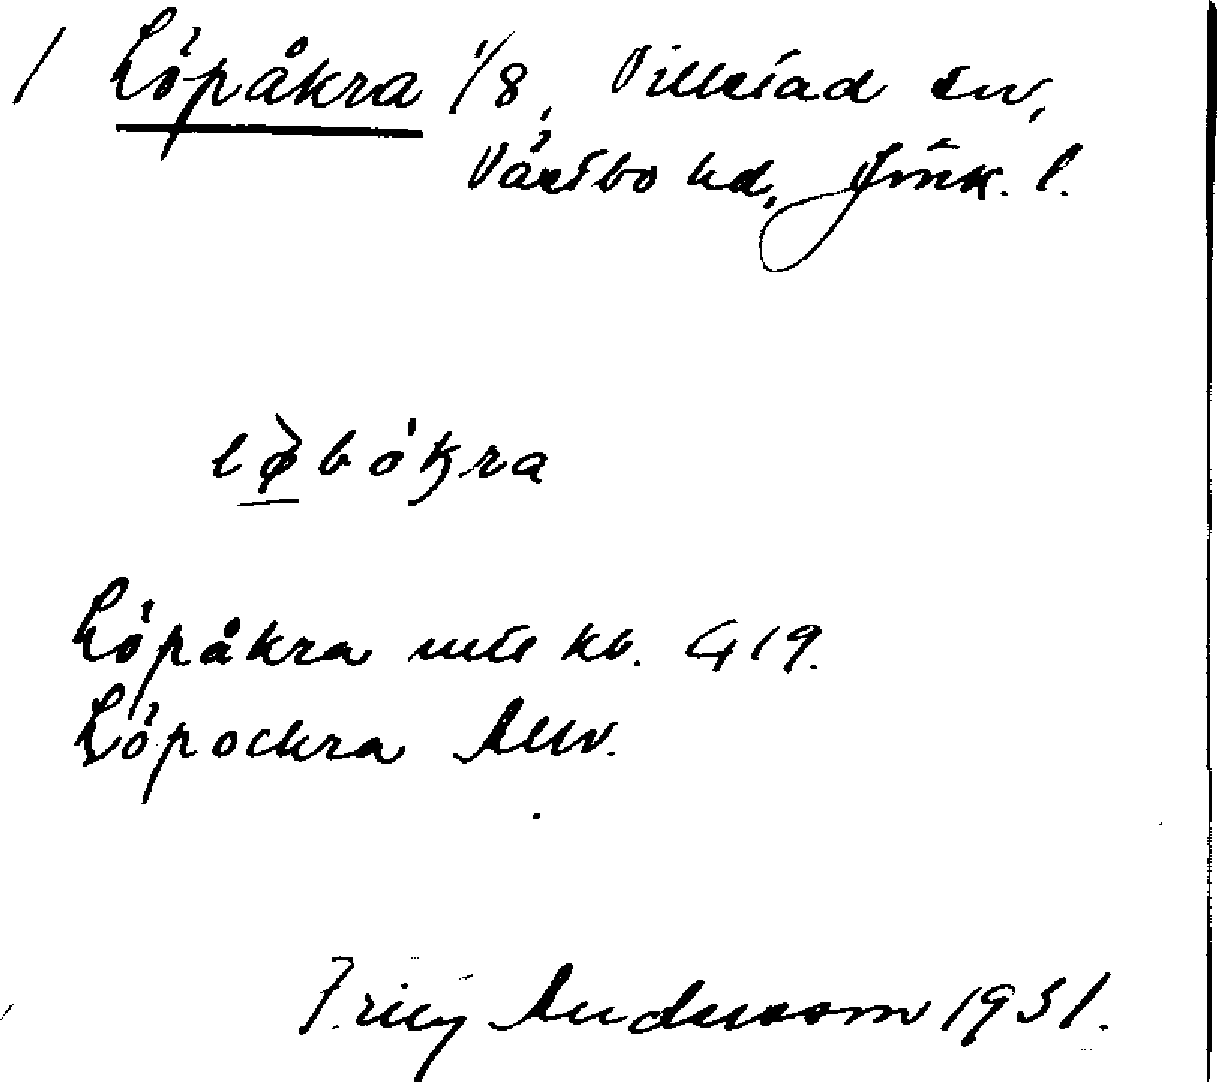 / Löpåkra 1/8, Villstad sn,
Västbo hd, Jönk. l.
löbókra
Löpåkra mtl kb. G 19.
Löpockra Allv.
Andersson 1931.